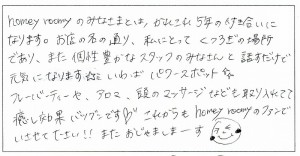 homey roomy のみなさまとは、かれこれ5年の付き合いに
なります。お店の名の通り、私にとって くつろぎの場所
であり、また個性豊かなスタッフのみなさんと 話すだけで
元気になります☆ いわば パワースポット☆
フレーバーティーや、アロマ、頭のマッサージなども取り入れてて
癒し効果 バツグンです♡ これからも homey roomyのファンで
いさせて下さい!! また おじゃましまーす